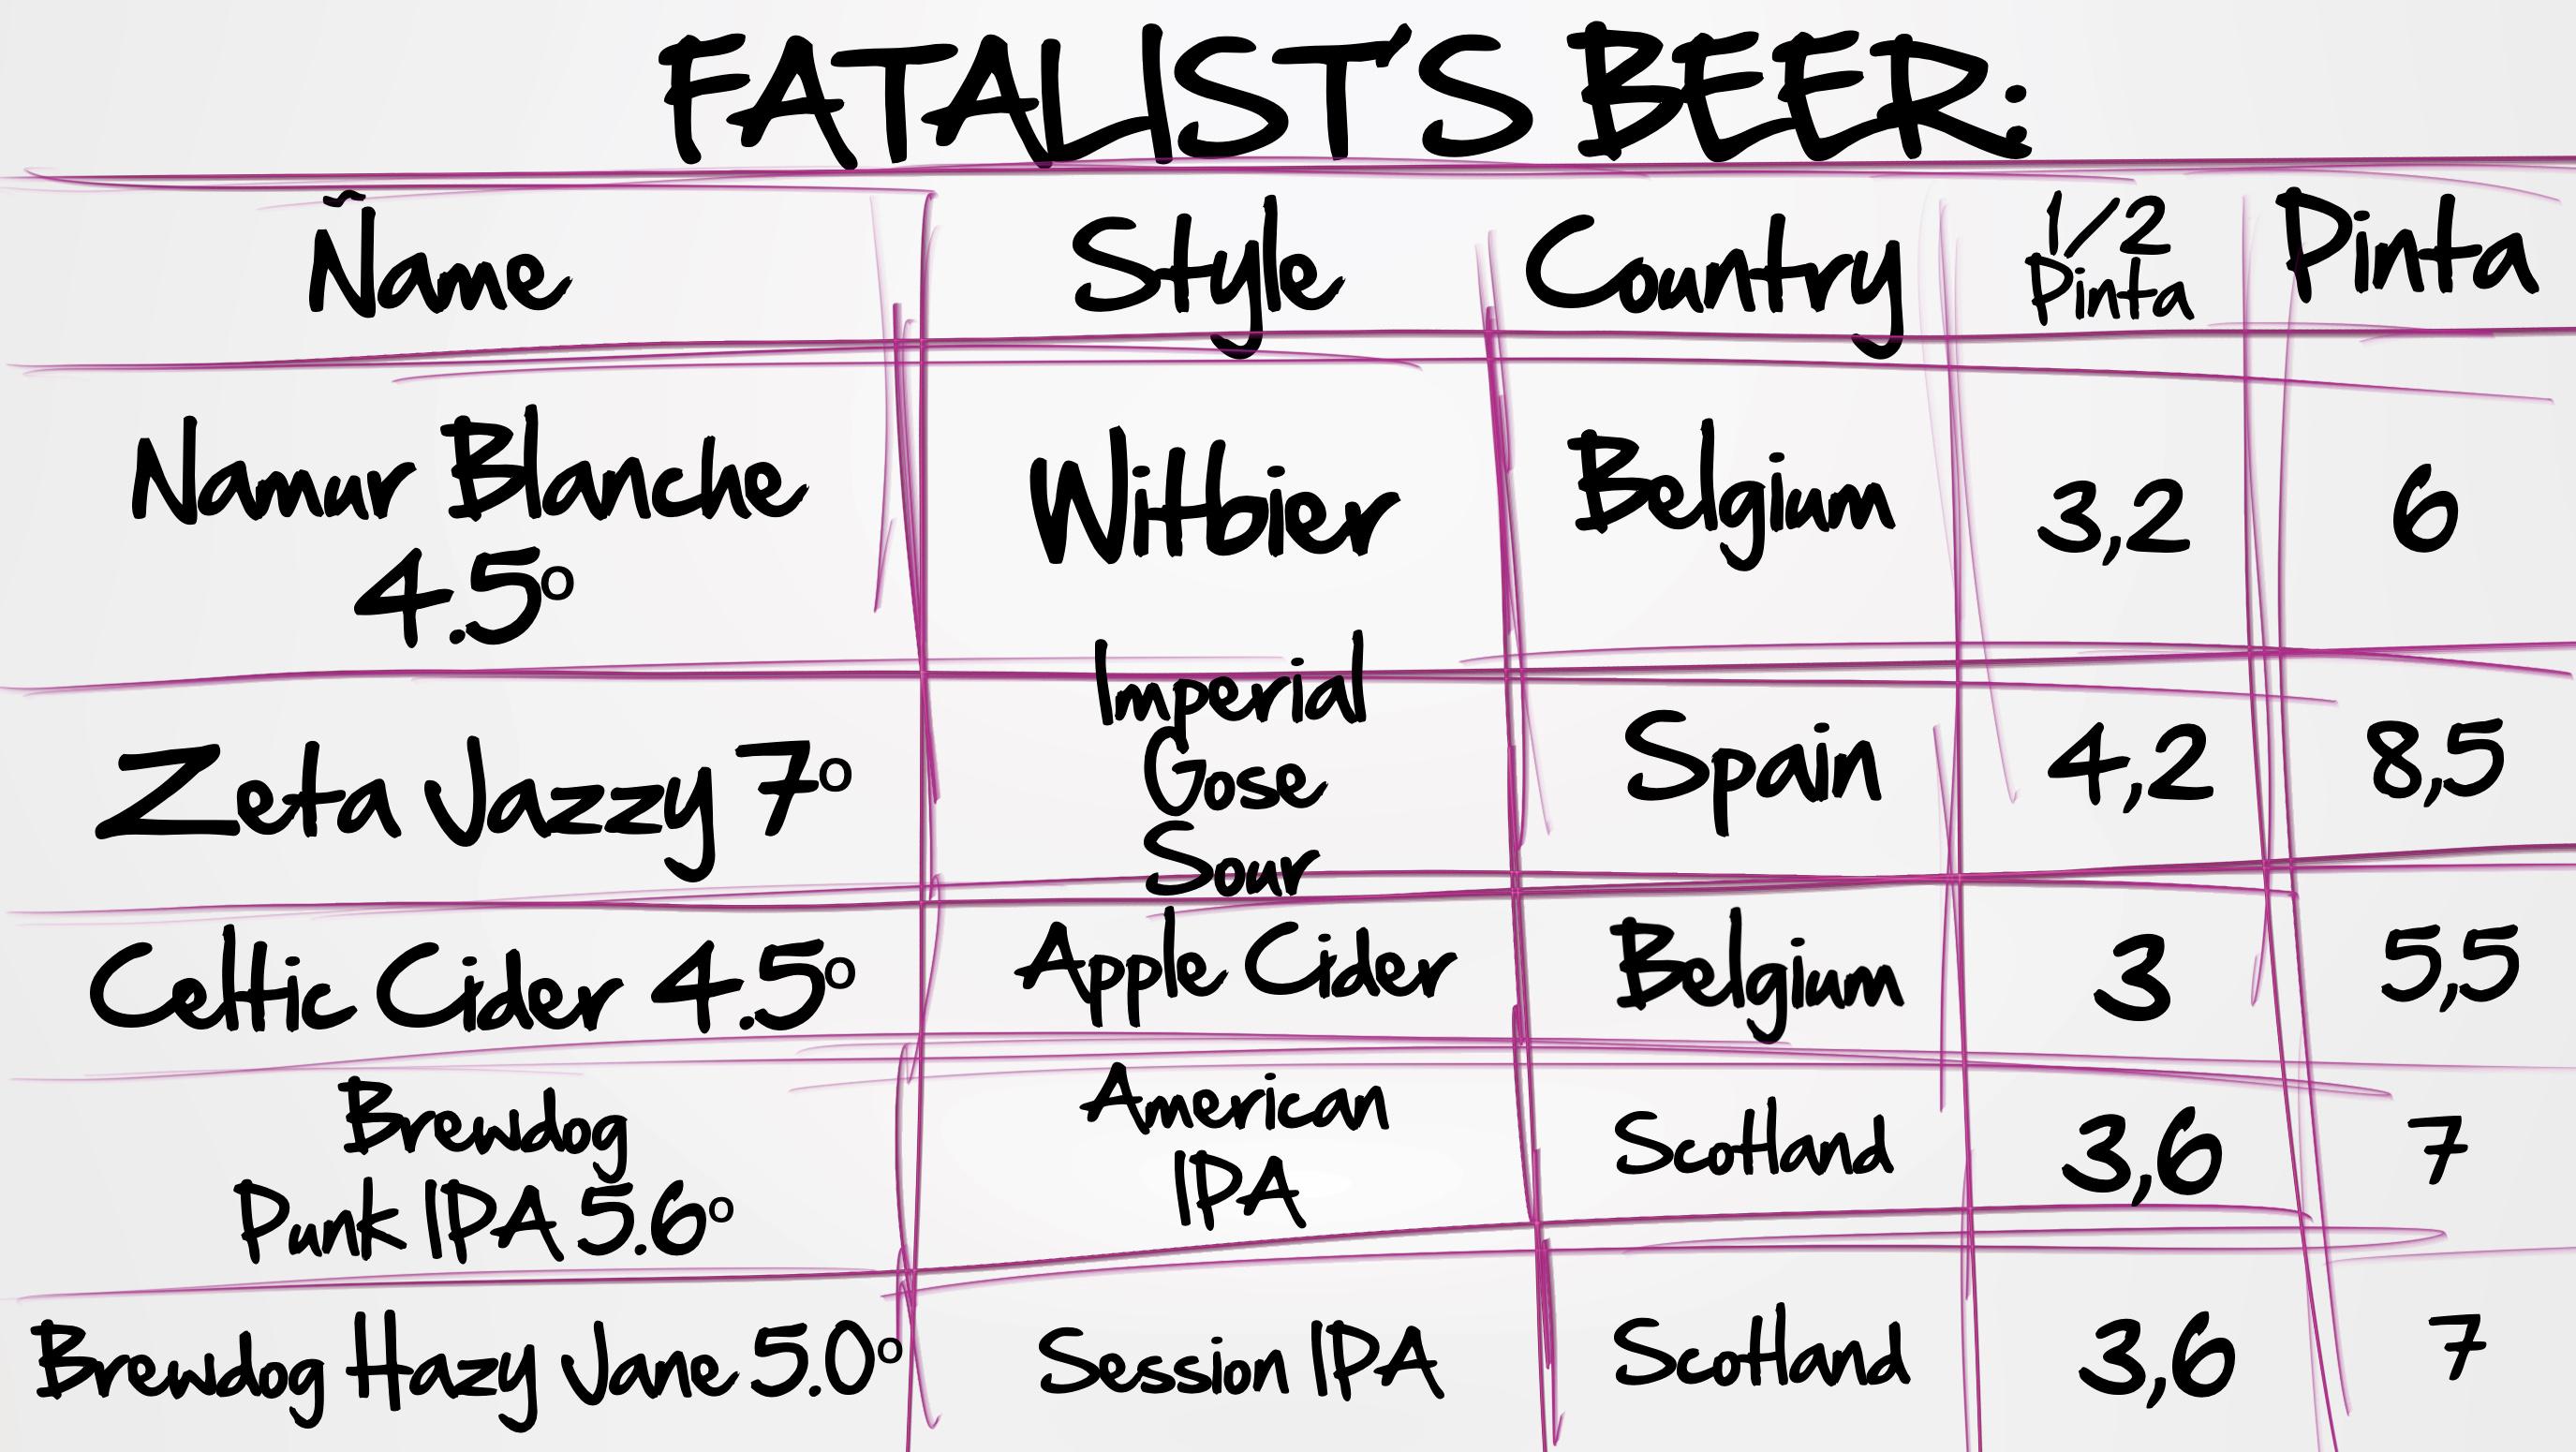 FATALIST'S BEER:
Ñame Style Country 1/2 Pinta Pinta
Namur Blanche
4.5º Witbier Belgium 3,2 6
Zeta Jazzy 7º Imperial
Gose
Sour Spain 4,2 8,5
Celtic Cider 4.5º Apple Cider Belgium 3 5,5
Brewdog
Punk IPA 5.6º American
IPA Scotland 3,6 7
Brewdog Hazy Jane 5.0º Session IPA Scotland 3,6 7